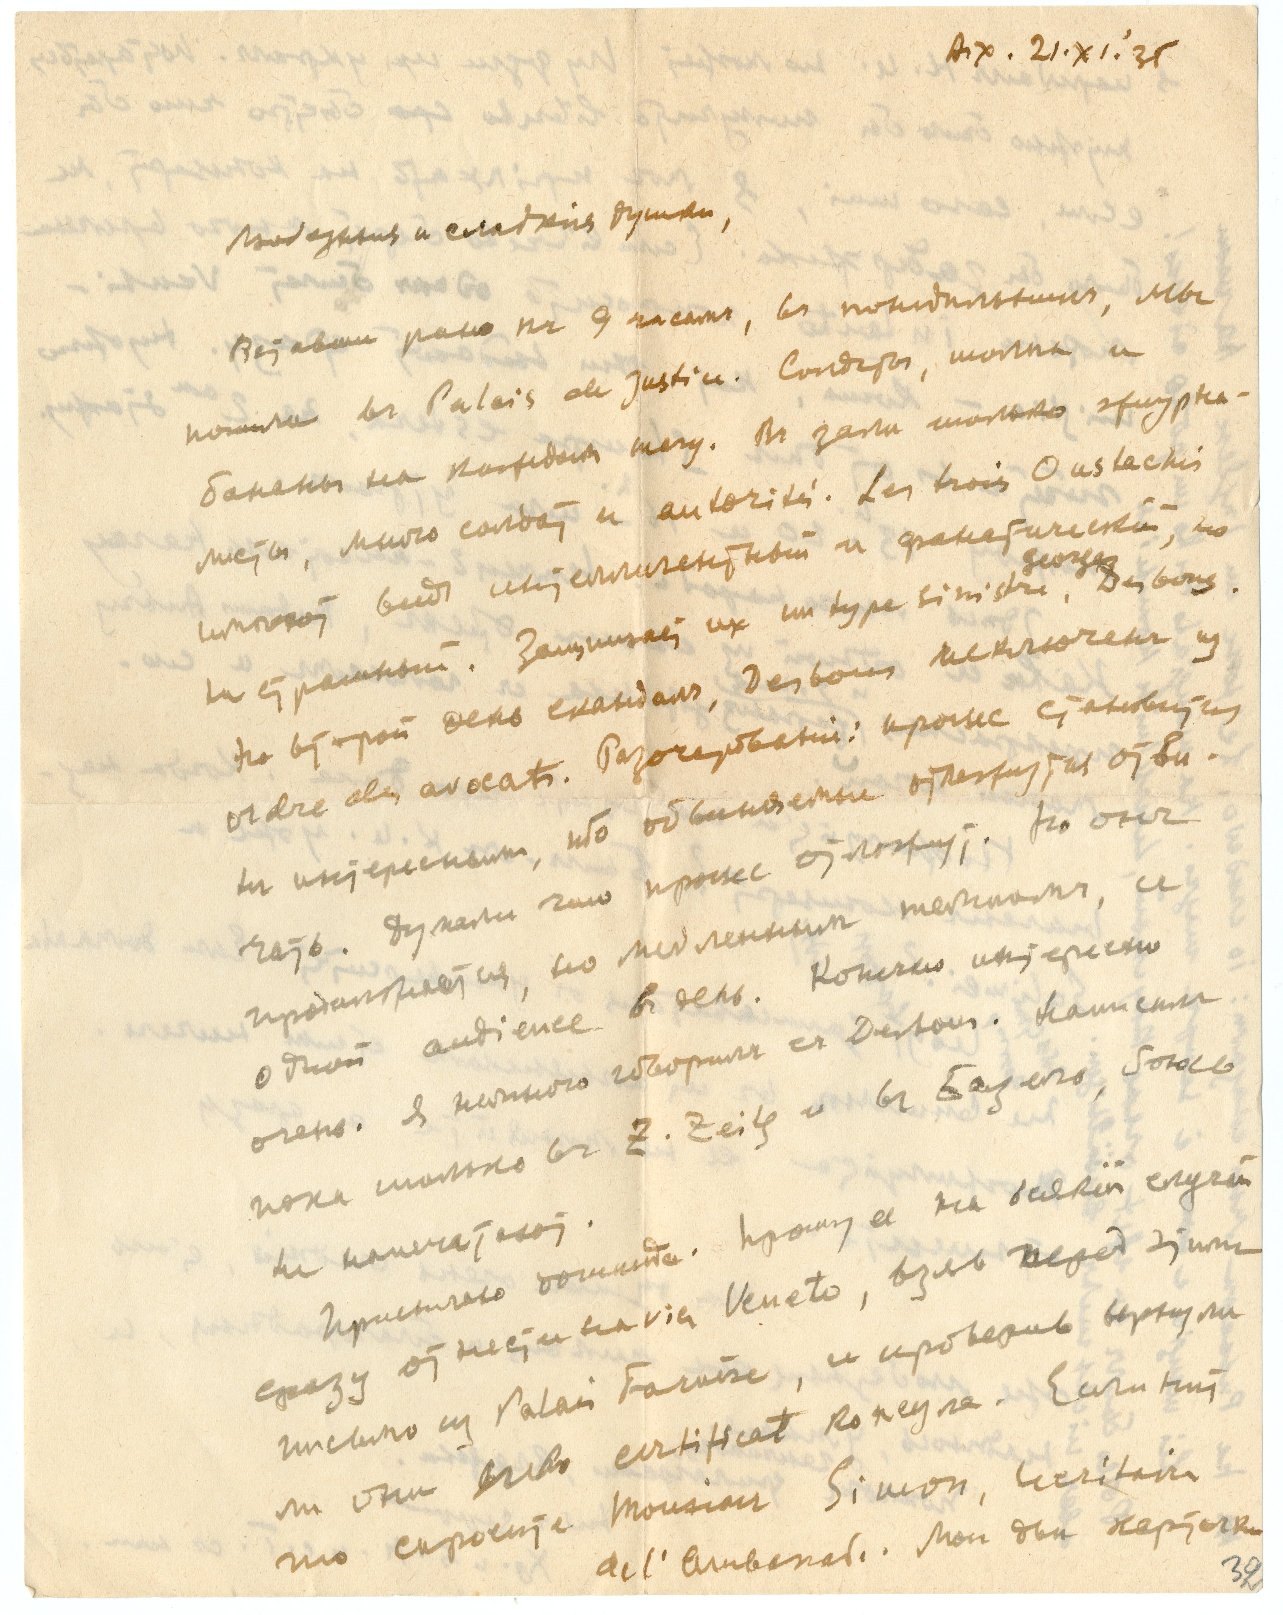 Aix. 21.XI.'35
Любезныя и сладкія душки,
Вставши рано къ 9 часамъ, въ понидѣльникъ, мы
пошли въ Palais de Justice. Солдаты, толпа и
бананы на каждомъ шагу. Въ залѣ только журна-
листы, много солдат и autorités. Les trois Oustachis
имѣют вид интеллигентный и фанатический, но
не страшный. Защищает их un type sinistre, Georges Desbons.
На второй день скандалъ, Desbons исключенъ из
ordre des avocats. Разочарованіе: процес становится
не интереснымъ, ибо обвиняемые отказуются отвѣ-
чать. Думали что процес отложут. Но онъ
продолжается, но медленнымъ темпомъ, и
одной audience въ день. Конечно интересно
очень. Я немного говорилъ съ Desbons. Написалъ
пока только въ Z. Zeitg и въ Базель, боюсь
не напечатают.
Прилагаю . Прошу ее на всякій случай
сразу отнести на via Veneto, взявъ перед этимъ
письмо из Palais Farnèse, и провѣрив вернули
ли они certificat консула. Если нет
то спросите Monsieur Simon, secrétaire
de l'Ambassade. Мои двѣ карточки
39